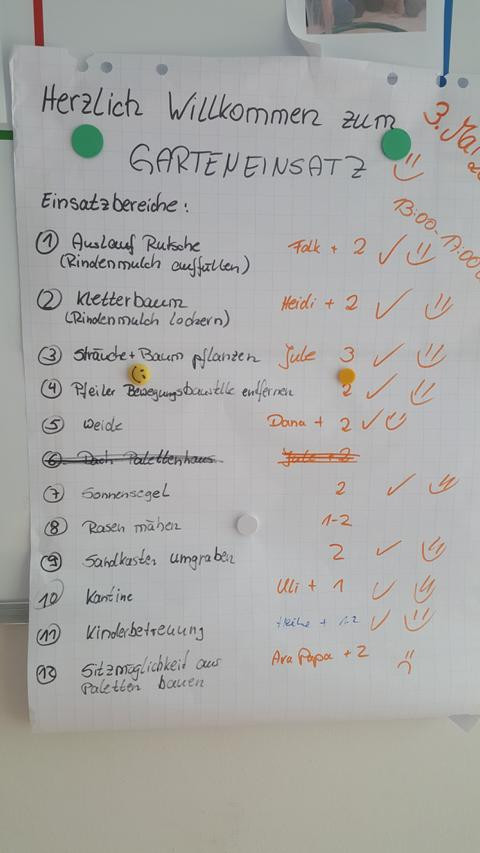 Herzlich Willkommen zum
GARTENEINSATZ
3. Mai
13:00-17:00
Einsatzbereiche:
① Auslauf Rutsche Falk + 2 ✓
(Rindenmulch auffüllen)
② Kletterbaum Heidi + 2 ✓
(Rindenmulch lockern)
③ Sträuche + Baum pflanzen Jule 3 ✓
④ Pfeiler Bewegungsbaustelle entfernen 2 ✓
⑤ Weide Dana + 2 ✓
⑥ Dach Palettenhaus Jule + 2
⑦ Sonnensegel 2 ✓
⑧ Rasen mähen 1-2
⑨ Sandkasten umgraben 2 ✓
⑩ Kantine Uli + 1 ✓
⑪ Kinderbetreuung Heike + 1-2 ✓
⑫ Sitzmöglichkeit aus Ara Papa + 2
Paletten bauen